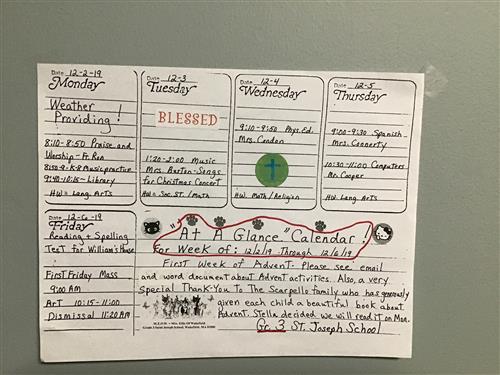 Date 12-2-19
Monday
Weather
Providing!
8:10-8:50 Praise and
Worship - Fr. Ron
8:50-9- K-8 Music practice
9:40-10:15 - Library
HW = Lang. Arts
Date 12-3
Tuesday
BLESSED
1:20-2:00 Music
Mrs. Barton-Songs
for Christmas Concert
HW= Soc. St. / Math
Date 12-4
Wednesday
9:10-9:50 Phys. Ed.
Mrs. Condon
HW. Math / Religion
Date 12-5
Thursday
9:00-9:30 Spanish -
Mrs. Connerty
10:30-11:00 Computers
Mr. Cooper
HW. Lang. Arts
Date 12-6-19
Friday
Reading + Spelling
Test for William's House
First Friday Mass
9:00 AM
Art 10:15-11:00
Dismissal 11:20 AM
"At A Glance" Calendar!
For Week of: 12/2/19 Through 12/6/19
First Week of Advent. Please see email
and word document about Advent activities. Also, a very
special Thank-You To The Scarpello family who has generously
given each child a beautiful book about
Advent. Stella decided we will read it on Mon.
Gr. 3 St. Joseph School
Grade 3 Saint Joseph School, Wakefield, MA 01880